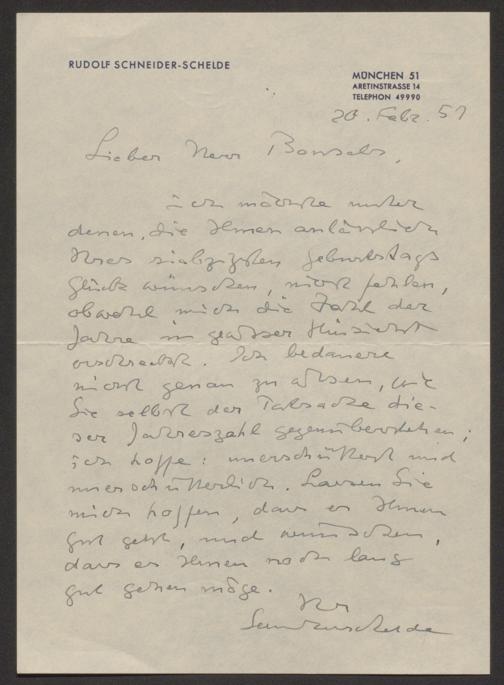 RUDOLF SCHNEIDER-SCHELDE
MÜNCHEN 51
ARETINSTRASSE 14
TELEPHON 49990
20. Febr. 51
Lieber Herr Bonsels,
ich möchte unter
denen, die Ihnen anlässlich
Ihres siebzigsten Geburtstags
Glück wünschen, nicht fehlen,
obwohl mich die Zahl der
Jahre in gewisser Hinsicht
erschreckt. Ich bedauere
nicht genau zu wissen, wie
Sie selbst der Tatsache die-
ser Jahreszahl gegenüberstehen;
ich hoffe: unerschüttert und
unerschütterlich. Lassen Sie
mich hoffen, dass es Ihnen
gut geht, und wünschen,
dass es Ihnen noch lang
gut gehen möge.
Ihr
Schneider-Schelde